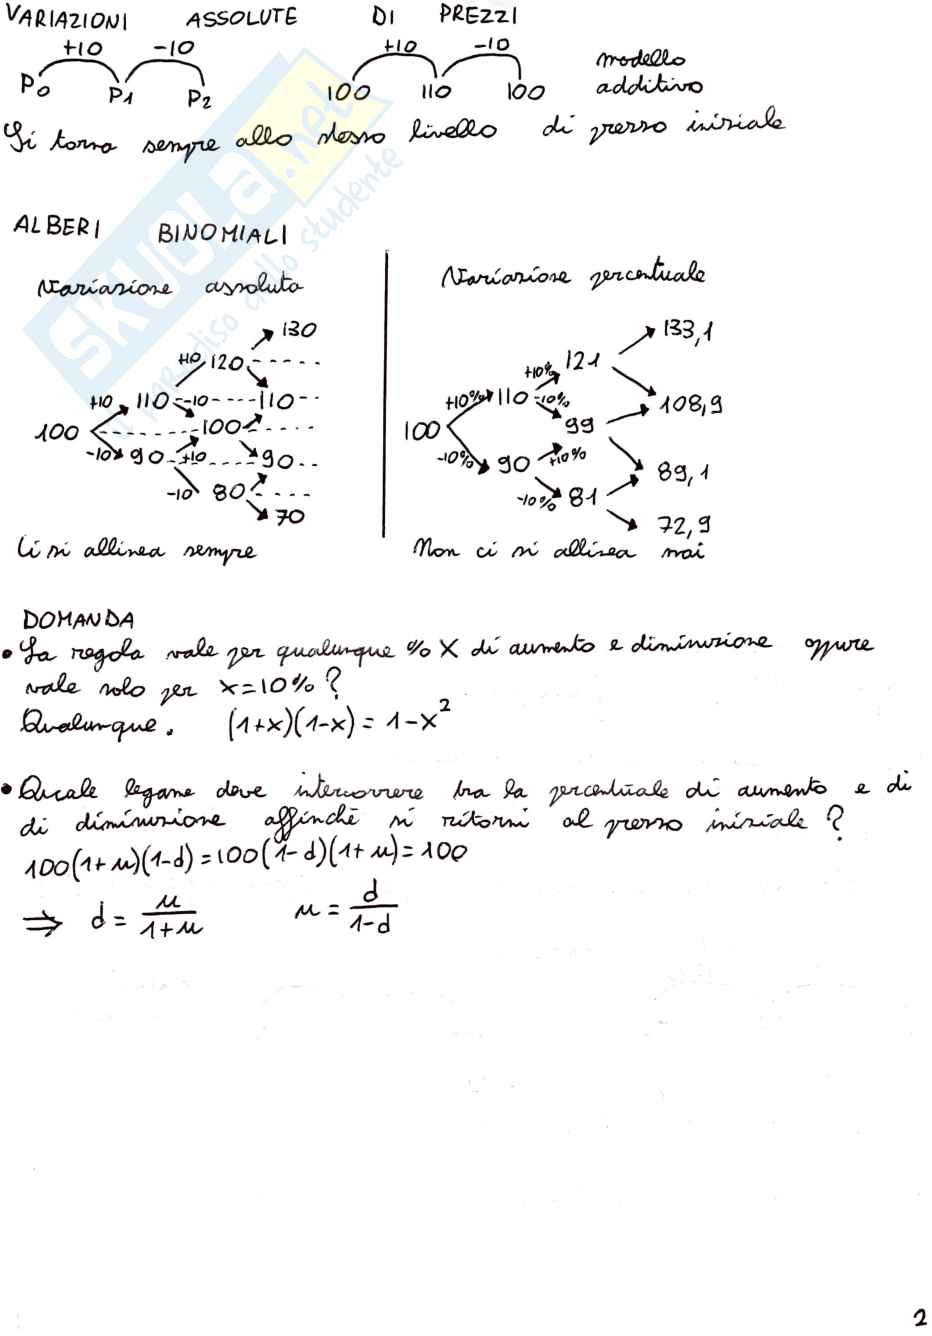 VARIAZIONI ASSOLUTE DI PREZZI
+10 -10 +10 -10
P0 P1 P2 100 110 100 modello additivo
Si torna sempre allo stesso livello di prezzo iniziale
ALBERI BINOMIALI
Variazione assoluta
130
+10 120
+10 110 -10 110
100 100
-10 90 +10 90
-10 80
70
Ci si allinea sempre
Variazione percentuale
133,1
+10% 121
+10% 110 -10% 108,9
100 99
-10% 90 +10% 89,1
-10% 81
72,9
Non ci si allinea mai
DOMANDA
• La regola vale per qualunque % X di aumento e diminuzione oppure
vale solo per x=10%?
Qualunque. (1+x)(1-x) = 1-x²
• Quale legame deve intercorrere tra la percentuale di aumento e di
di diminuzione affinchè si ritorni al prezzo iniziale?
100(1+u)(1-d) = 100(1-d)(1+u) = 100
⇒ d = u/(1+u) u = d/(1-d)
2
SKUOLA.net
il paradiso dello studente